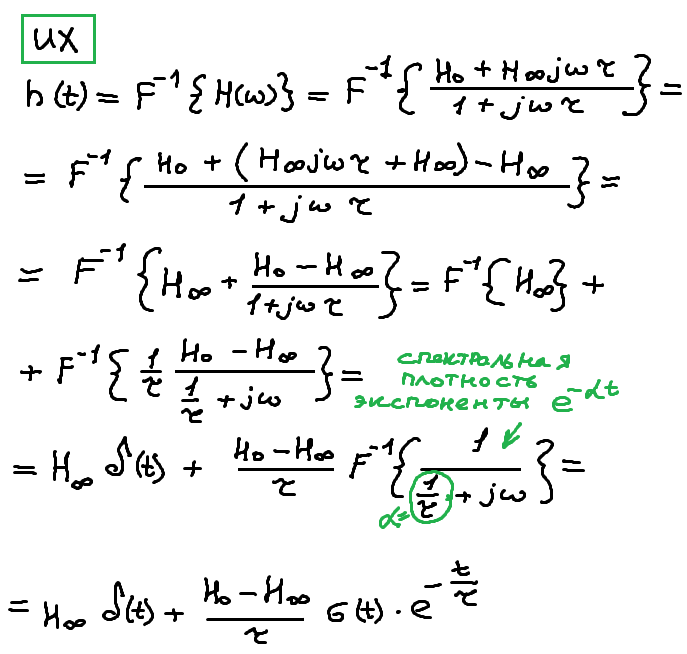 ИХ
h(t) = F⁻¹{H(ω)} = F⁻¹{(H₀ + H∞jωτ)/(1 + jωτ)} =
= F⁻¹{(H₀ + (H∞jωτ + H∞) − H∞)/(1 + jωτ)} =
= F⁻¹{H∞ + (H₀ − H∞)/(1 + jωτ)} = F⁻¹{H∞} +
+ F⁻¹{1/τ (H₀ − H∞)/(1/τ + jω)} =
спектральная
плотность
экспоненты e^(−αt)
= H∞ δ(t) + (H₀ − H∞)/τ F⁻¹{1/(1/τ + jω)} =
α=
= H∞ δ(t) + (H₀ − H∞)/τ σ(t) · e^(−t/τ)